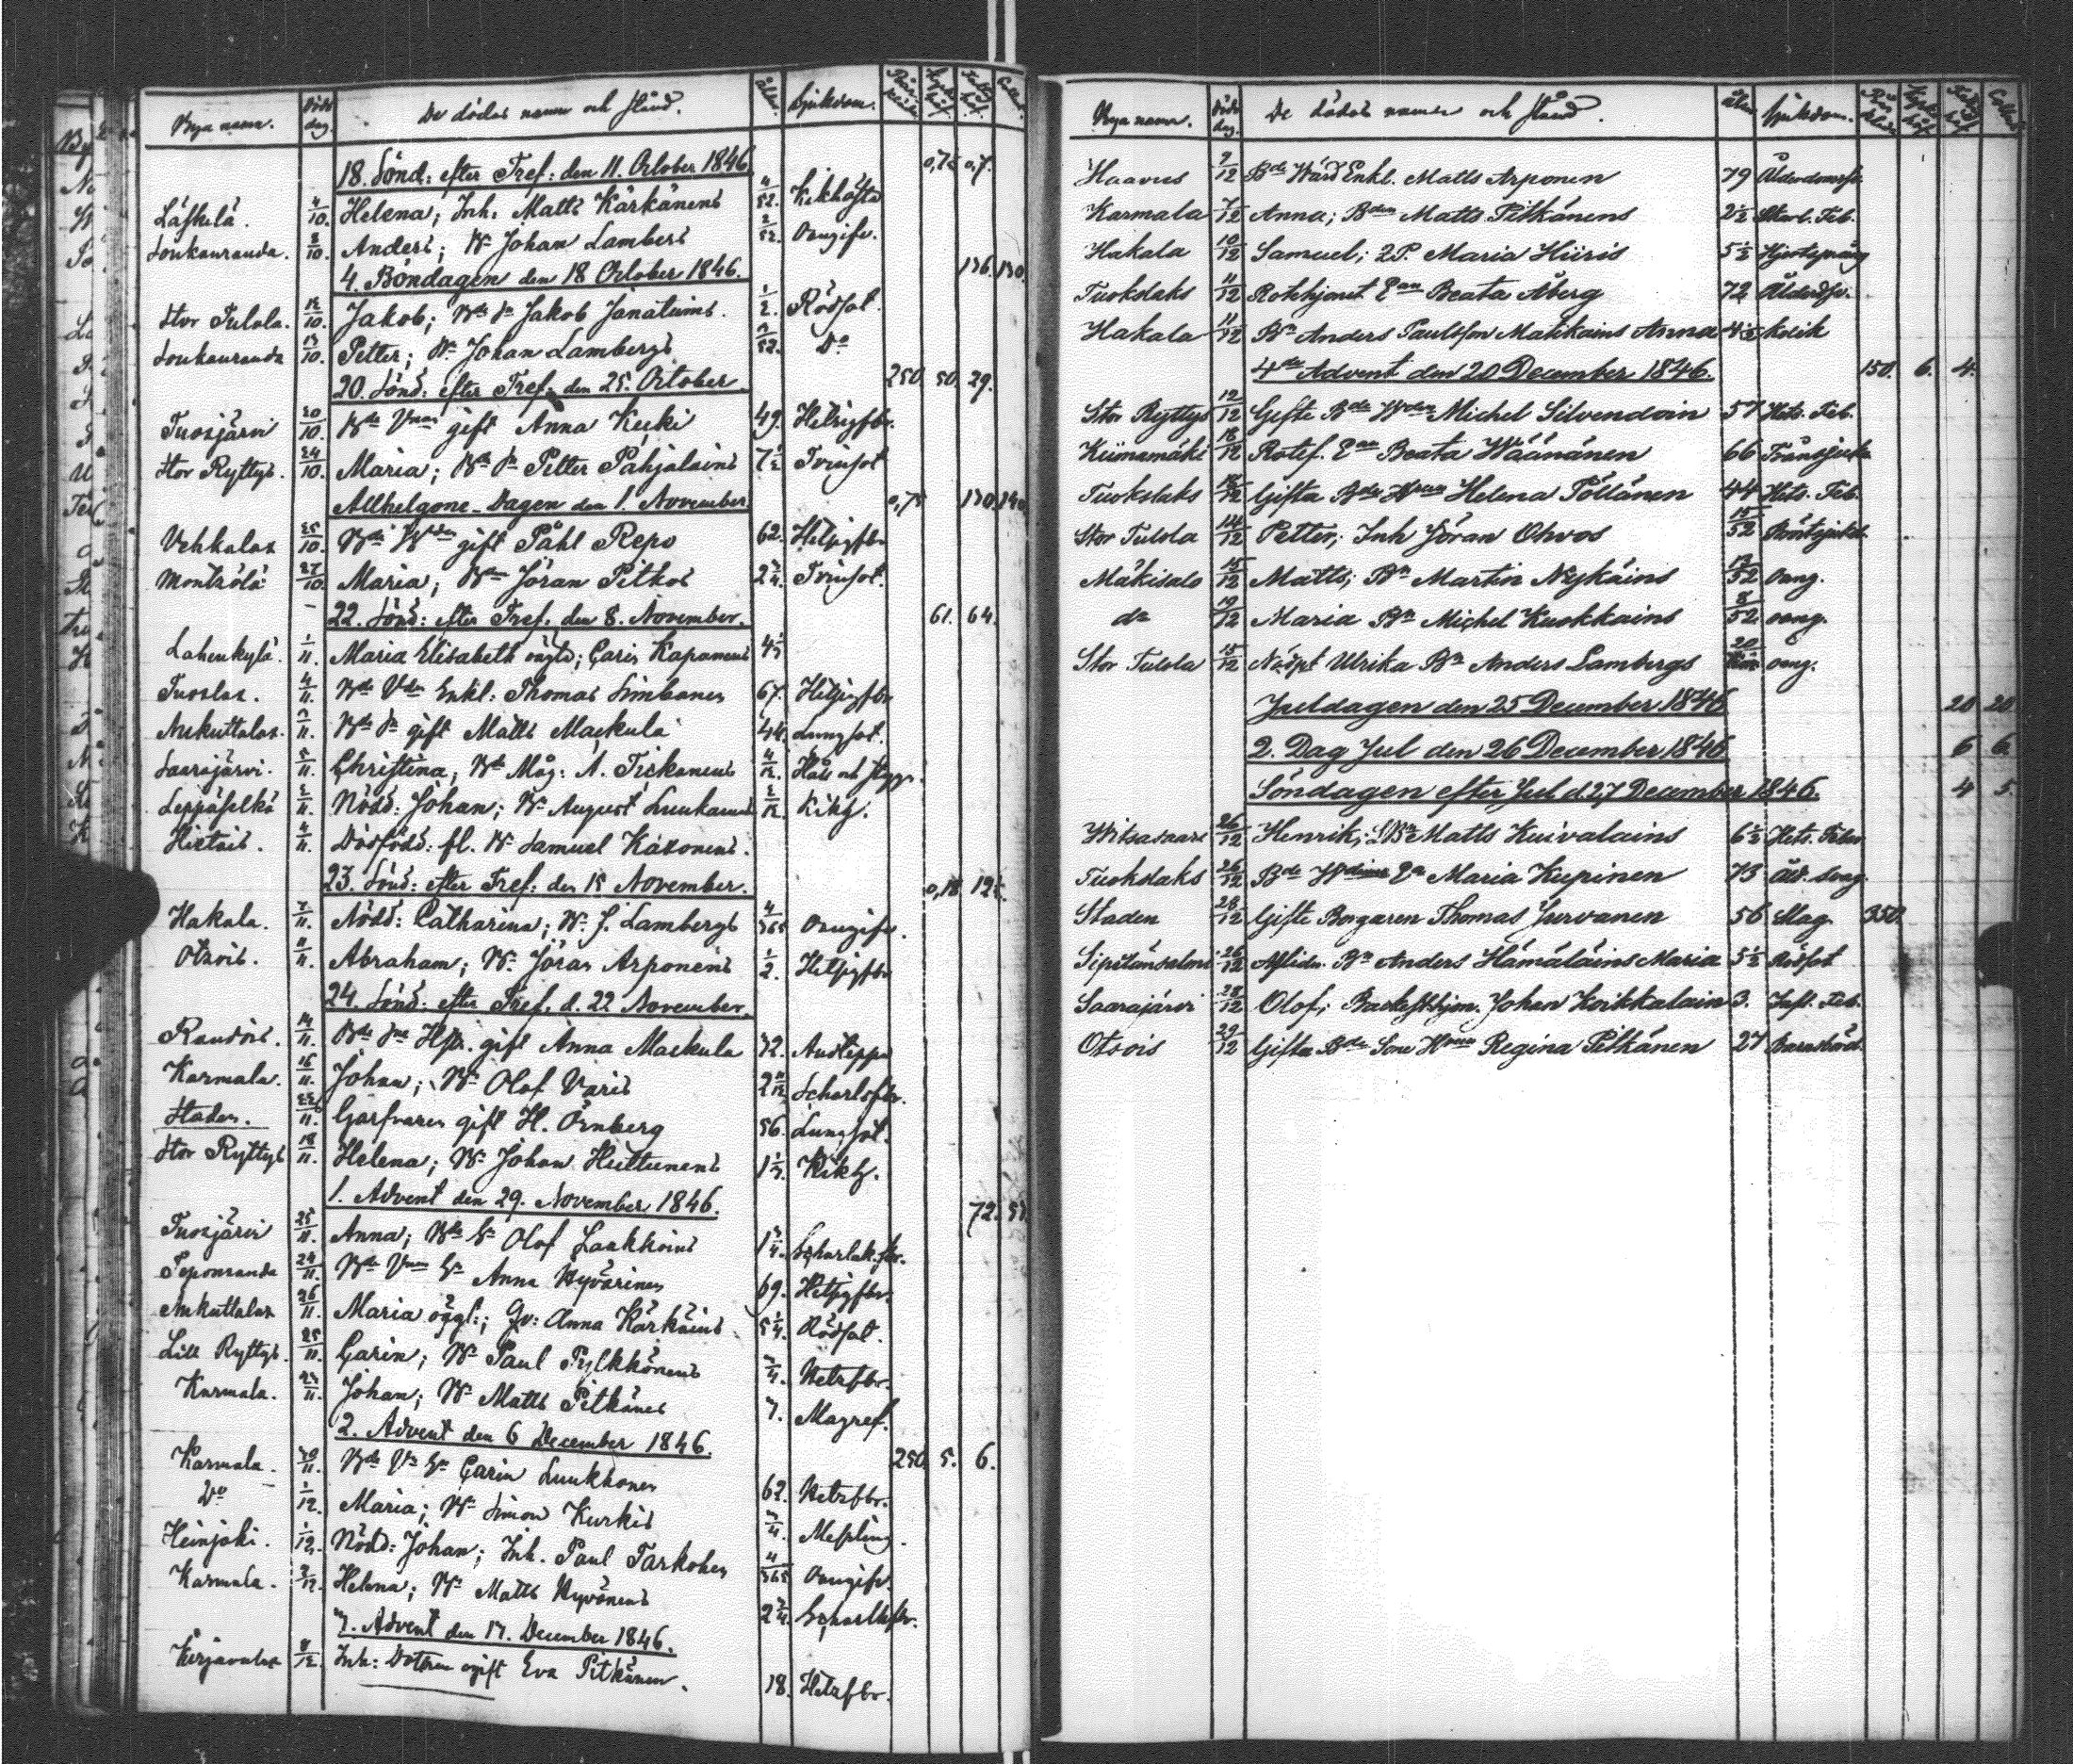 Bya namn. Död dag. De dödas namn och stånd. Ålder. Sjukdom.
18. Sönd: efter Tref: den 11. October 1846. 0,75 0,7.
Läskelä. 4/10. Helena; Inh. Matts Kärkänens 4/52. Kikhosta
Soukanranda. 8/10. Anders; Bn Johan Lambers 2/52. Oangifv.
4. Böndagen den 18 October 1846. 136. 130.
Stor Tulola. 12/10. Jakob; Bde Sn Jakob Janatuins. 1/2. Rödsot.
Soukanranda 13/10. Petter; Bn Johan Lambergs 3/52. Do
20. Sönd: efter Tref. den 25. October. 250. 50. 29.
Tuosjärvi 20/10. Bde Vnan gift Anna Kecki 49. Hetsigfbr.
Stor Ryttys. 24/10. Maria; Bde Sn Petter Pahjalains 7 1/2 Tvinsot
Allhelgone-Dagen den 1. November. 0,75 130. 140.
Vehkalax 25/10. Bde Vden gift Påhl Repo 62. Hetsigfbr
Montsölä: 27/10. Maria; Bdn Jöran Pitkos 2 3/4. Tvinsot.
22. Sönd: efter Tref. den 8. November. 61. 64.
Lahenkylä. 1/11. Maria Elisabeth oägta; Carin Kapanens
Tuoslax. 4/11. Bde Vdn Enkl. Thomas Simbanen 67. Hetsigfbr
Nukuttalax. 3/11. Bde Sn gift Matts Mackula 44. Lungsot.
Saarajärvi. 5/11. Christina; Bde Måg: A. Tiskanens 4/12. Håll och stygn.
Leppäselkä 2/11. Nödd: Johan; Bn August Luukanens 2/12. Kikh.
Hietais. 4/11. Dödfödd: fl. Bn Samuel Kaxonens.
23. Sönd: efter Tref: den 15 November. 0,18 12
Hakala. 7/11. Nödd: Catharina; Bn J. Lambergs 4/365 Oangifv.
Otsois. 11/11. Abraham; Bn Jöran Arponens 1/2. Hetsigfbr
24. Sönd: efter Tref. d. 22 November.
Raudois. 14/11. Bde Sns Hu. gift Anna Mackula 32. Andtäppa
Karmala. 16/11. Johan; Bn Olof Varis 2 11/12 Scharlsfbr.
Staden. 22/11. Garfvaren gift H. Örnberg 56. Lungsot.
Stor Ryttys 18/11. Helena; Bn Johan Huttunens 1 1/2. Kikh.
1. Advent den 29. November 1846. 72.
Tuosjärvi 25/11. Anna; Bde Sn Olof Laukkoins 1 3/4. Scharlak.fbr.
Peponranda 24/11. Bde Vnan En Anna Hyvärinen 69. Hetsigfbr.
Nukuttalax 26/11. Maria oägt:; Qv: Anna Kärkäins 5 1/4. Rödsot.
Lill Ryttys. 25/11. Carin; Bn Paul Pylkkönens 3/4. Hetsfbr.
Karmala. 23/11. Johan; Bn Matts Pitkänes 7. Magref.
2. Advent den 6 December 1846. 250. 5. 6.
Karmala. 30/11. Bde Vn En Carin Luukkonen 62. Hetsfbr.
Do 1/12. Maria; Bn Simon Kurkis 3/4. Meßling.
Heinjoki. 1/12. Nödd: Johan; Inh. Paul Tarkohen 4/365 Oangifv.
Karmala. 2/12. Helena; Bn Matts Hyvönens 2 3/4. Scharlksfbr.
3. Advent den 13. December 1846.
Kirjavalax 8/12. Inh: Dottren ogift Eva Pitkänen. 18. Hetsfbr.
Bya namn. Död dag. De dödas namn och stånd. Ålder Sjukdom.
Haavus 7/12 Bde Wärd Enkl. Matts Arponen 79 Ålderdomsf.
Karmala 7/12 Anna; Bden Matts Pitkänens 2 1/2 Skarl. Feb.
Hakala 10/12 Samuel; 2.P. Maria Hiiris 5 1/2 Hjertspräng
Tuokslaks 11/12 Rotehjonet Ean Beata Åberg 72 Ålderdf.
Hakala 11/12 Bn Anders Paulsson Makkains Anna 4 kolik
4de Advent den 20 December 1846. 150. 6. 4.
Stor Ryttys 12/12 Gifte Bde Wden Michel Silvendoin 57 Hets. Feb.
Kiimamäki 18/12 Rotef. Ean Beata Wäänänen 66 Trånsjuka
Tuokslaks 18/12 Gifta Bde Wnan Helena Pöllänen 44 Hets. Feb.
Stor Tulola 14/12 Petter; Inh Jöran Ohvos 15/52 Bröstsjukd.
Mäkisalo 15/12 Matts; Bn Martin Nykäins 17/52 oang.
do 19/12 Maria Bn Michel Kuokkains 8/52 oang.
Stor Tulola 15/12 Nödpt Ulrika Bn Anders Lambergs 20 oang.
Juldagen den 25 December 1846 20 20
2. Dag Jul den 26 December 1846 6 6.
Söndagen efter Jul d 27 December 1846. 4 5.
Witsasaari 26/12 Henrik; Matts Kuivalains 6 1/2 Hets. Feber
Tuokslaks 26/12 Bde En Maria Kupinen 73 Åld. svag.
Staden 28/12 Gifte Borgaren Thomas Jurvanen 56 Slag. 350.
Sipilänsalmi 26/12 Aflidn. Bn Anders Hämäläins Maria 5 1/2 Rödsot
Saarajärvi 28/12 Olof; Johan Koikkalain 3. Feb.
Otsois 29/12 Gifta Bde Sone Hnan Regina Pitkänen 27 Barnsbörd.